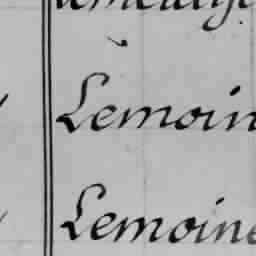 Lemoin
Lemoine